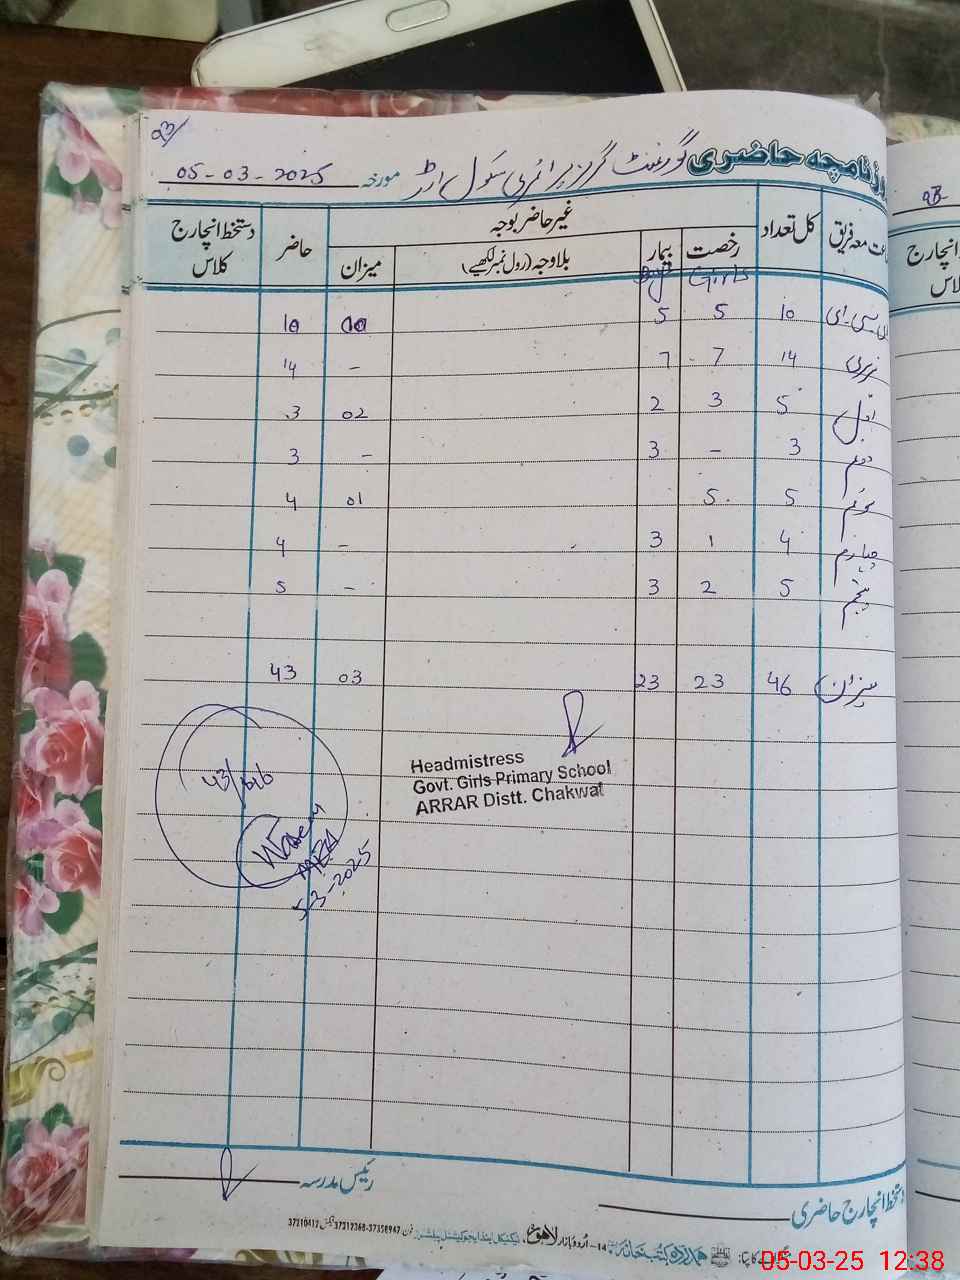 93/
روزنامچہ حاضری گورنمنٹ گرلز پرائمری سکول ارڑ مورخہ 05-03-2025
کل تعداد غیر حاضر بوجہ حاضر دستخط انچارج کلاس
رخصت بیمار بلاوجہ (رول نمبر لکھیے) میزان
Girls Boy
ای سی ای 10 5 5 00 10
نرسری 14 7 7 - 14
اول 5 3 2 02 3
دوم 3 - 3 - 3
سوئم 5 5 01 4
چہارم 4 1 3 - 4
پنجم 5 2 3 - 5
میزان 46 23 23 03 43
Headmistress
Govt. Girls Primary School
ARRAR Distt. Chakwal
43/46
MEA
5-3-2025
رئیس مدرسہ
دستخط انچارج حاضری
ہمدرد کتب خانہ 14- اردو بازار لاہور
05-03-25 12:38